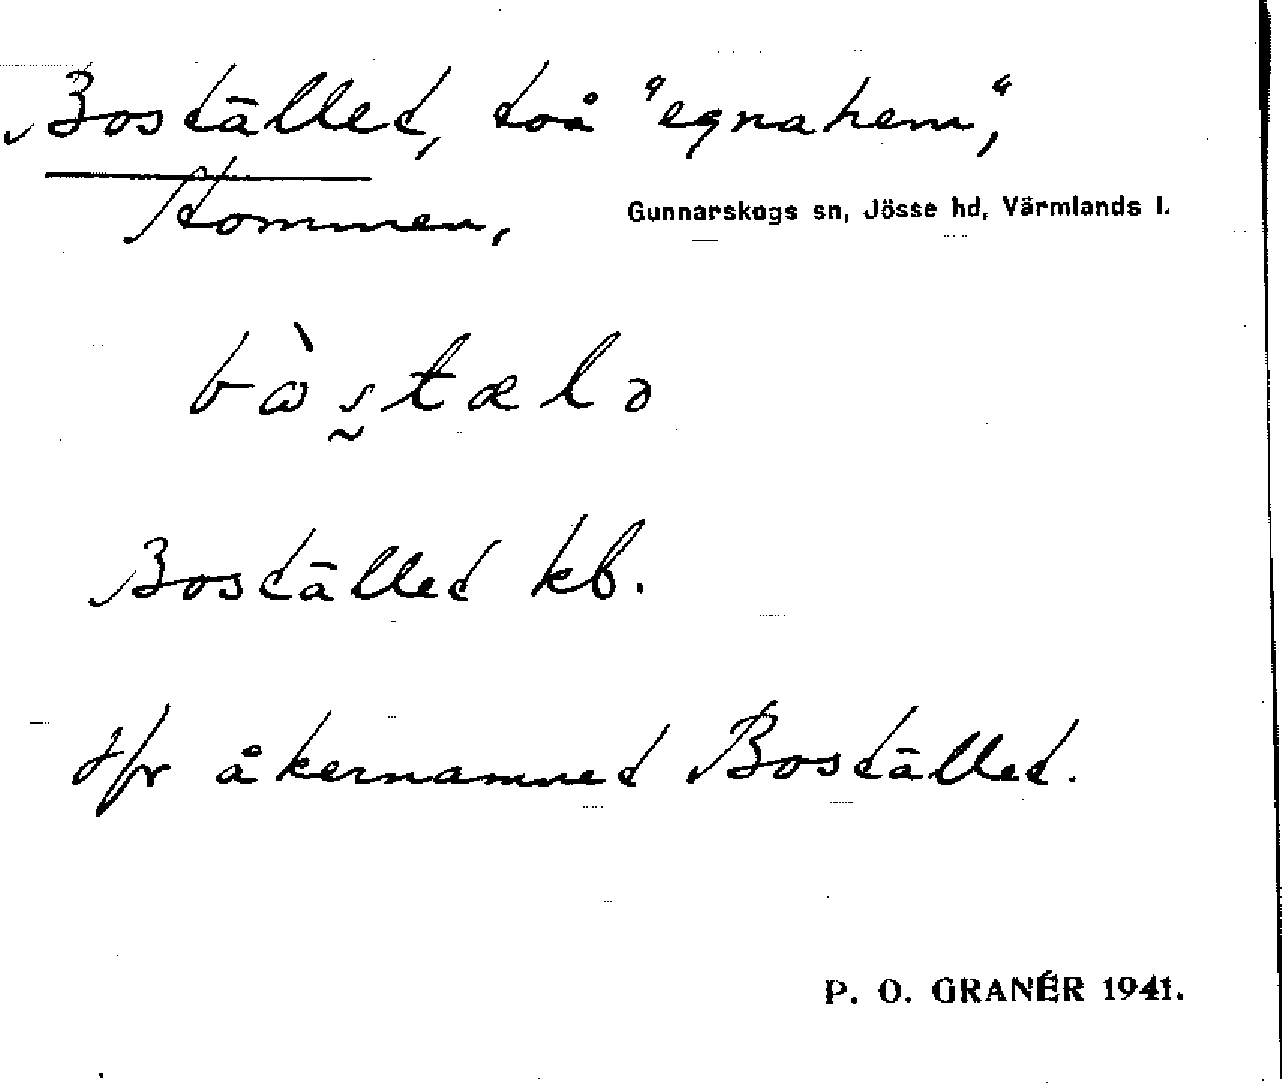 Bostället, två "egnahem",
Kommen,
Gunnarskogs sn, Jösse hd, Värmlands l.
Bostället kb.
Jfr åkernamnet Bostället.
P. O. GRANÉR 1941.